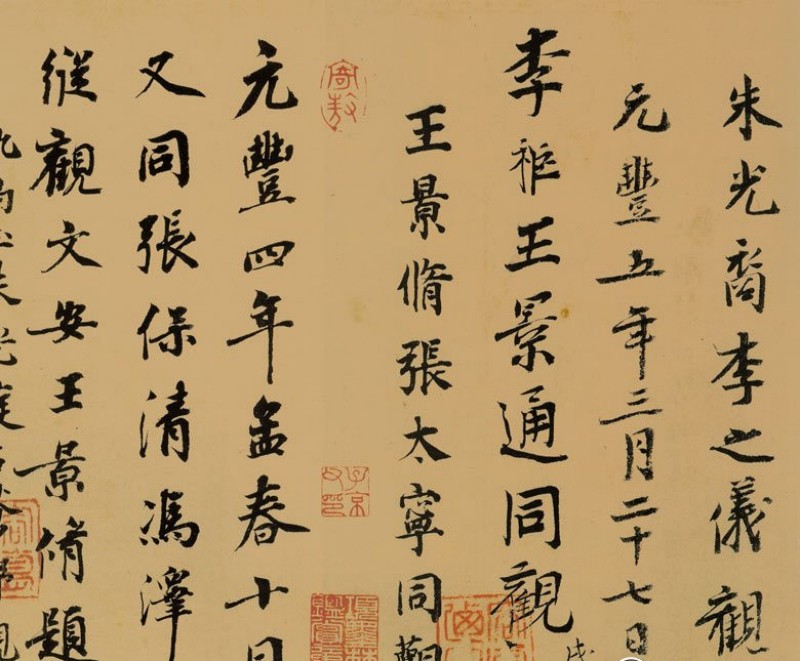 朱光裔李之儀觀
元豐五年三月二十七日
李秬王景通同觀
王景脩張太寧同觀
子京父印
元豐四年孟春十日
又同張保清馮澤
縱觀文安王景脩題